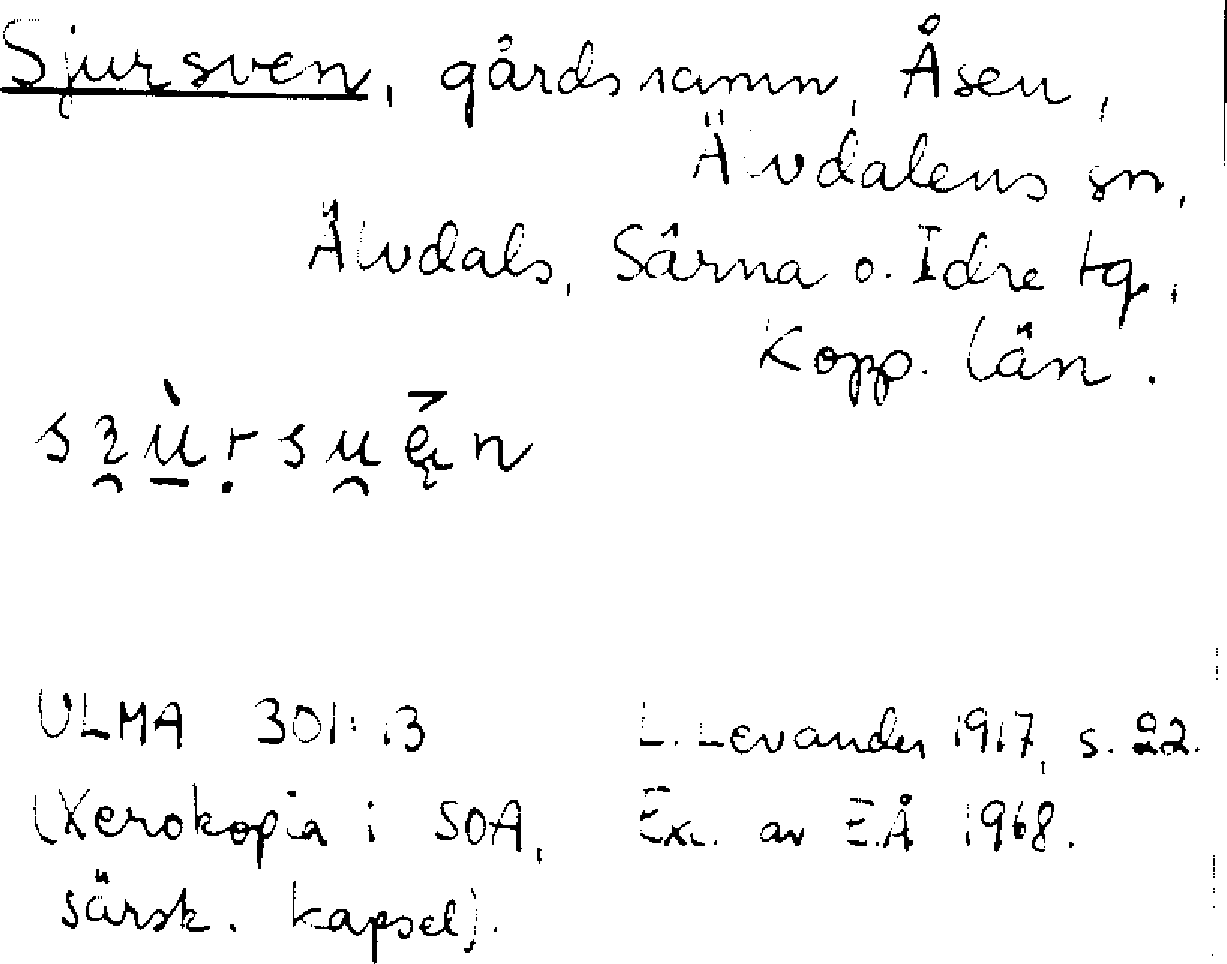 Sjursven, gårdsnamn, Åsen,
Älvdalens sn,
Älvdals, Särna o. Idre tg,
Kopp. län.
ULMA 301:13
L. Levander 1917, s. 22.
(Xerokopia i SOA,
Exc. av E.Å 1968.
särsk. kapsel).